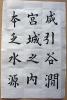 咸引谷澗
宮城之內
本乏水源